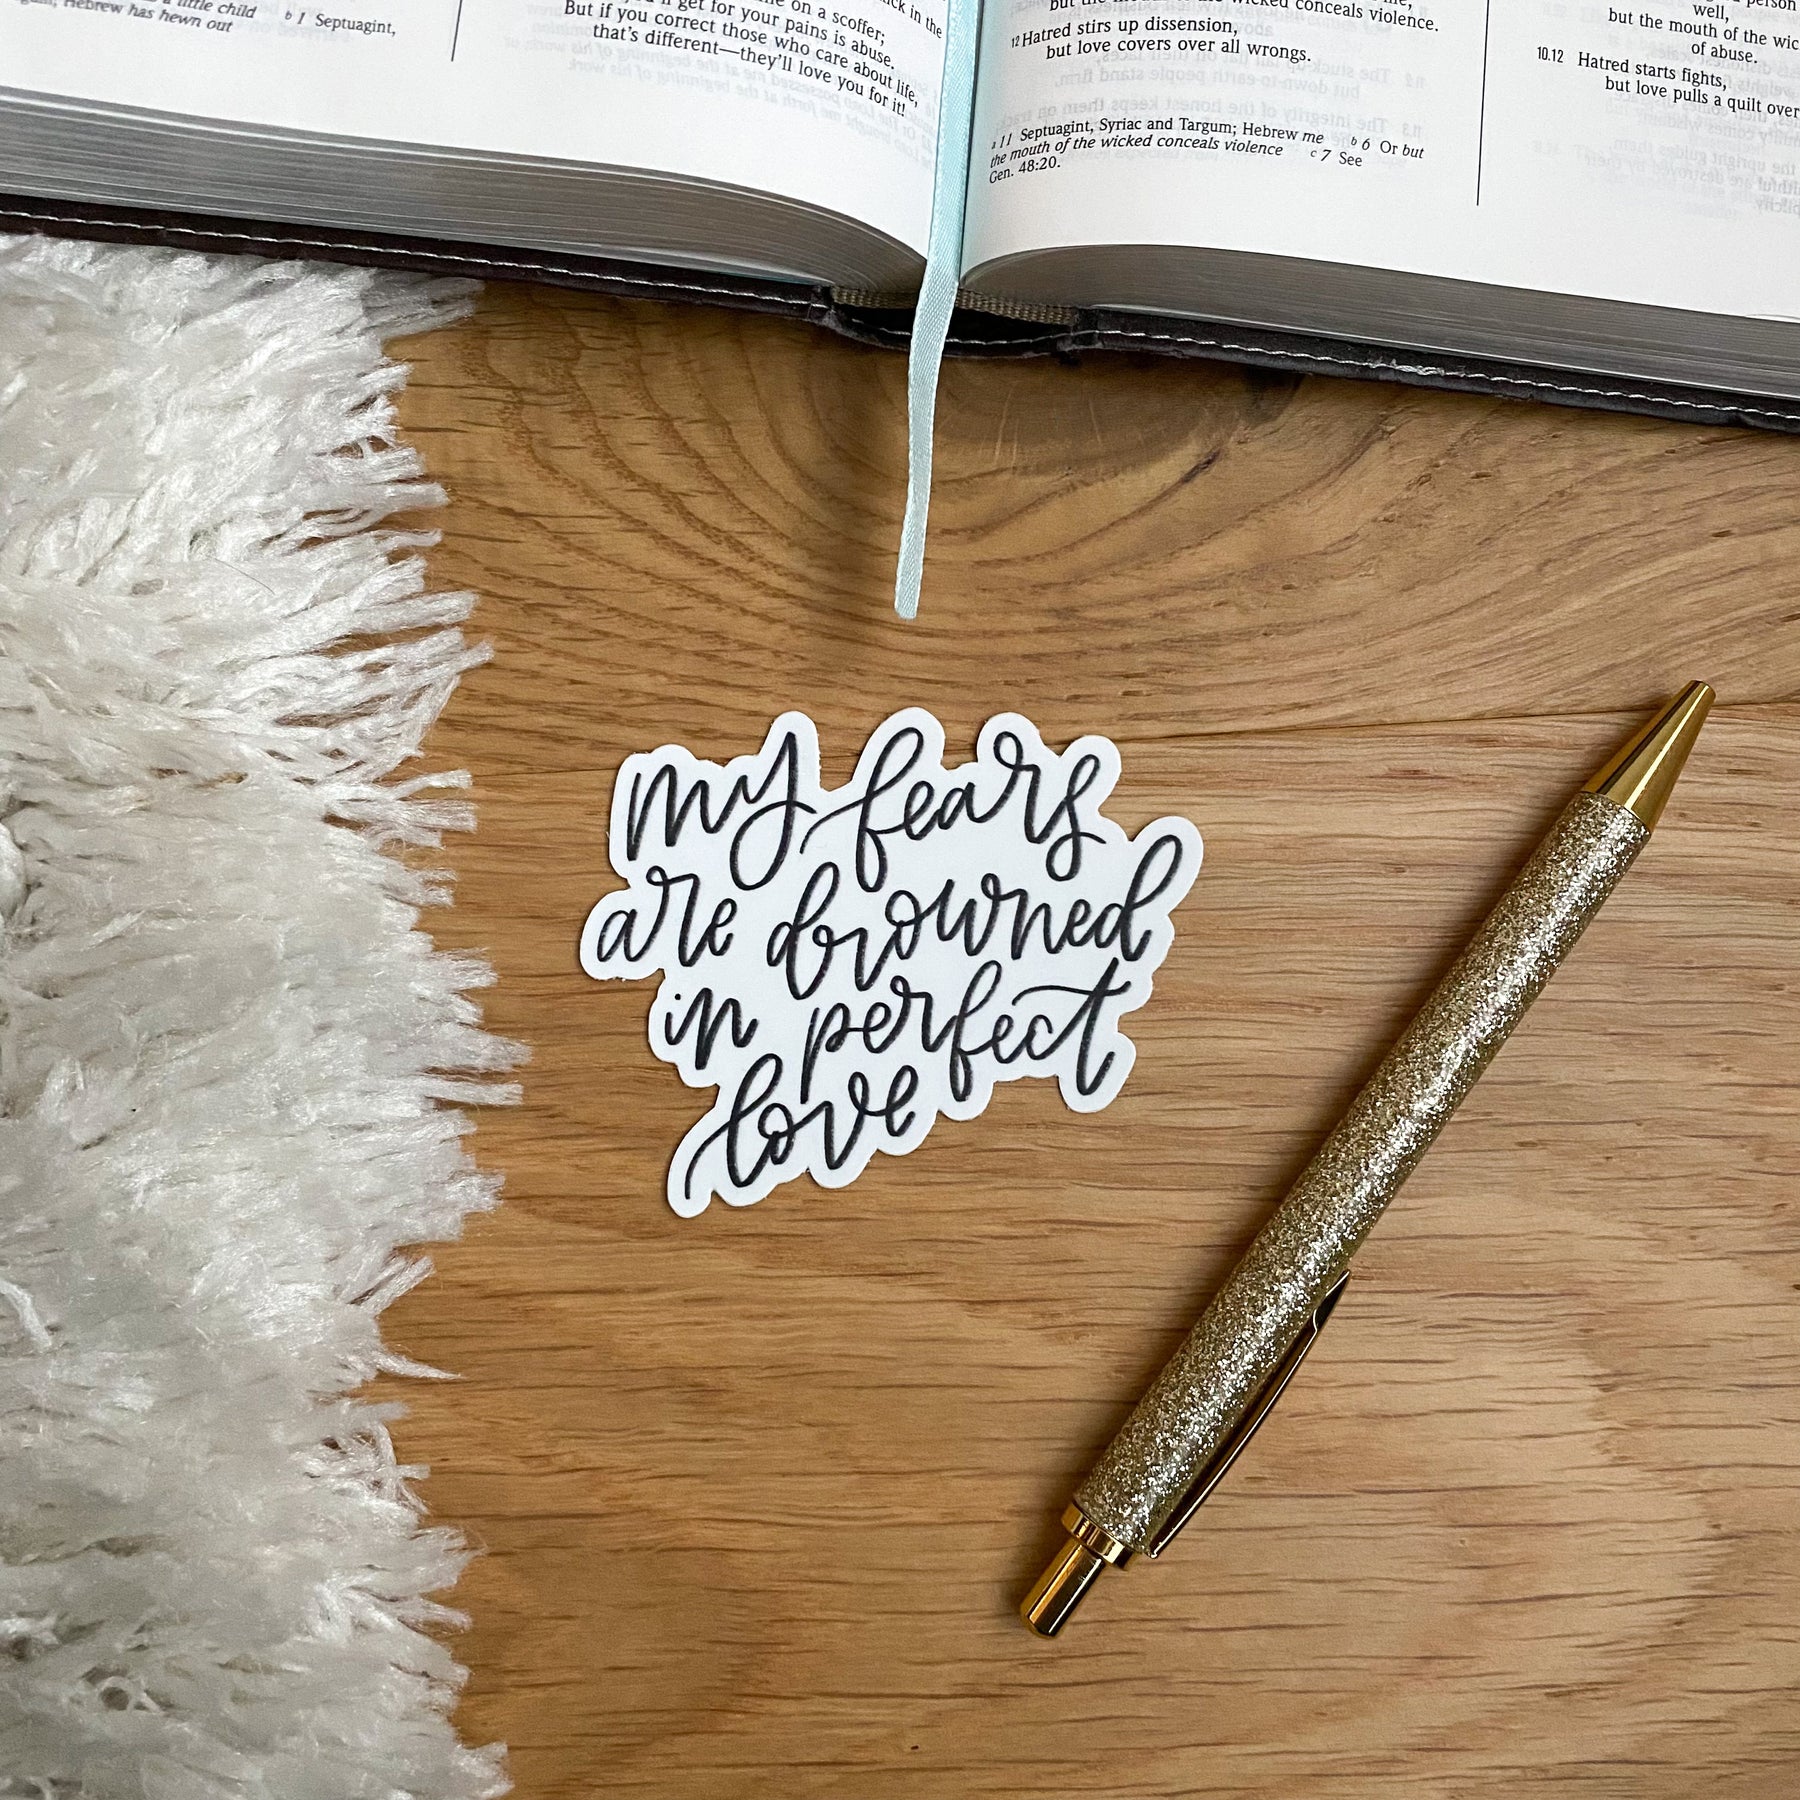 a little child
Hebrew has hewn out
b 1 Septuagint,
on a scoffer;
get for your pains is abuse.
But if you correct those who care about life,
that's different—they'll love you for it!
in the
conceals violence.
12 Hatred stirs up dissension,
but love covers over all wrongs.
a 11 Septuagint, Syriac and Targum; Hebrew me b 6 Or but
the mouth of the wicked conceals violence c 7 See
Gen. 48:20.
person
well,
but the mouth of the wic
of abuse.
10.12 Hatred starts fights,
but love pulls a quilt over
my fears
are drowned
in perfect
love